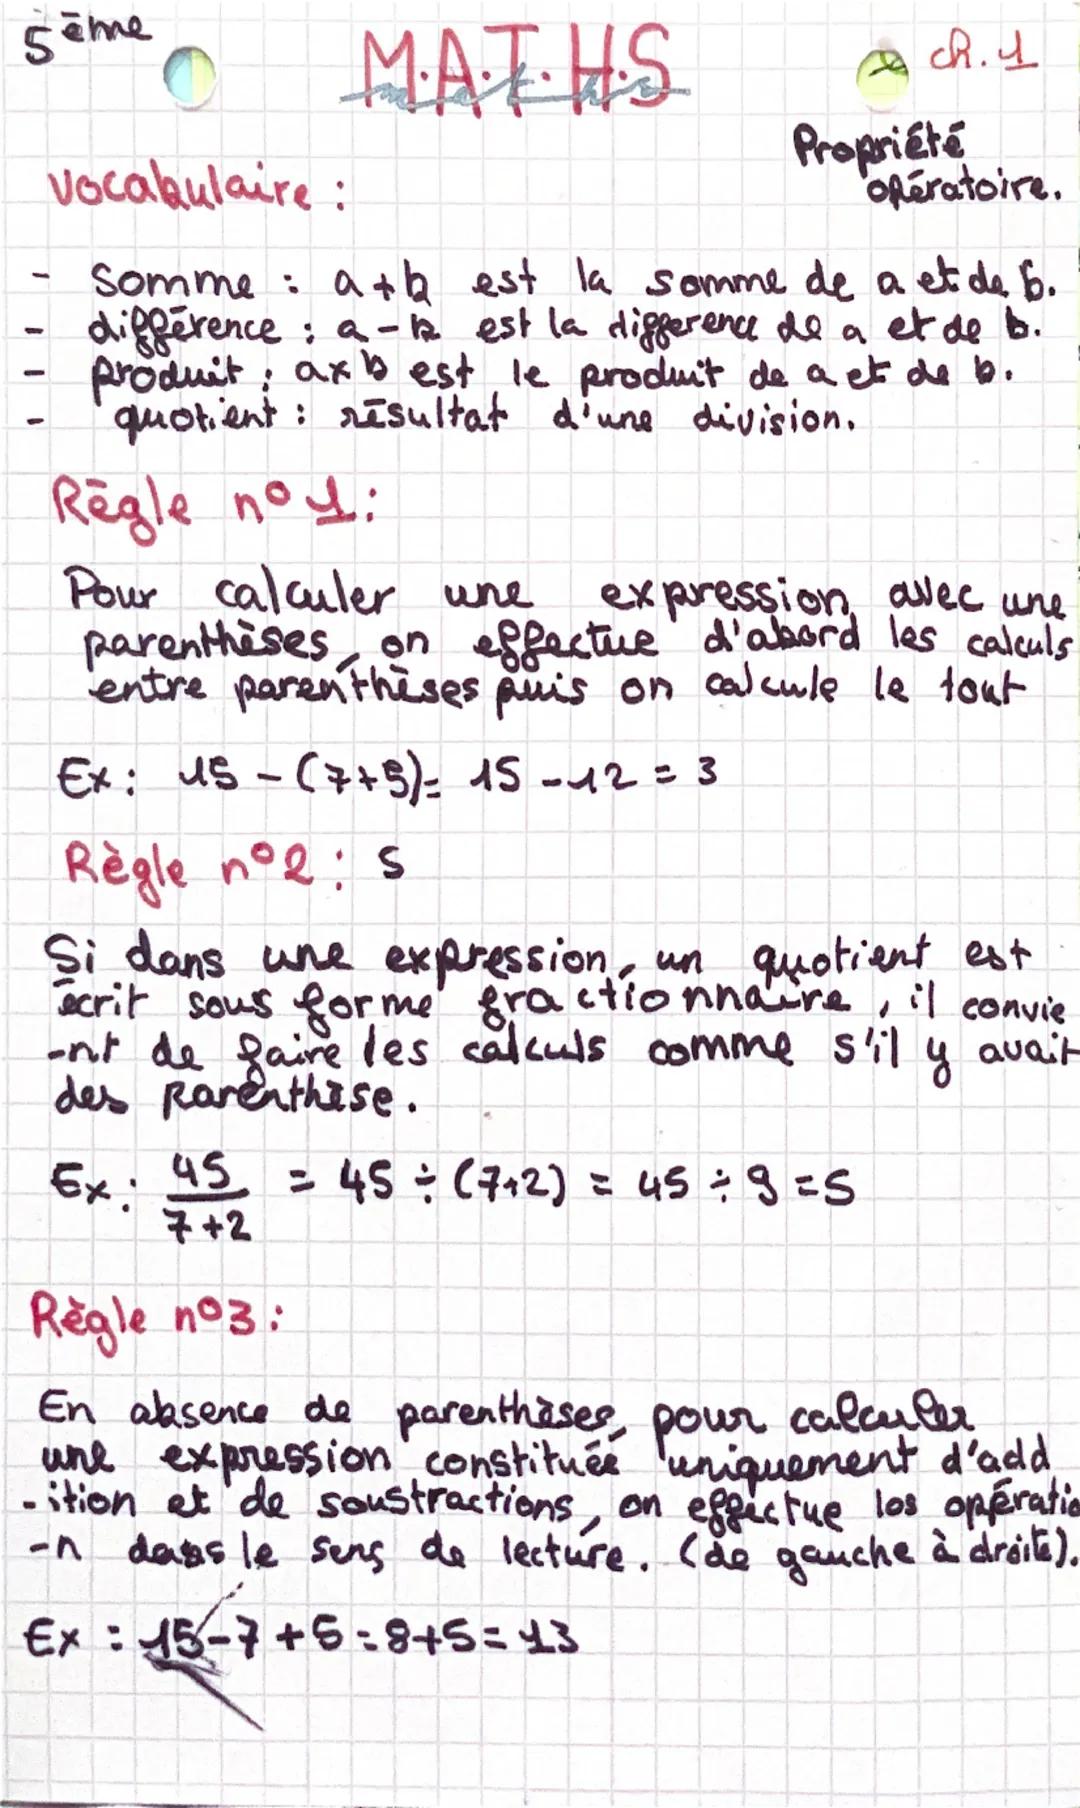 5ème
M.A.T.H.S
maths
ch. 1
Propriété
opératoire.
vocabulaire :
- somme : a+b est la somme de a et de b.
- différence : a-b est la difference de a et de b.
- produit : axb est le produit de a et de b.
- quotient : résultat d'une division.
Règle n°1:
Pour calculer une expression avec une
parenthèses, on effectue d'abord les calculs
entre parenthèses puis on calcule le tout
Ex: 15 - (7+5)= 15 -12 = 3
Règle n°2: s
Si dans une expression, un quotient est
écrit sous forme fractionnaire, il convie
-nt de faire les calculs comme s'il y avait
des parenthèse.
Ex: 45/7+2 = 45 ÷ (7+2) = 45 ÷ 9 =5
Règle n°3:
En absence de parenthèses, pour calculer
une expression constituée uniquement d'add
-ition et de soustractions, on effectue les opératio
-n dans le sens de lecture. (de gauche à droite).
Ex : 15-7+5=8+5=13